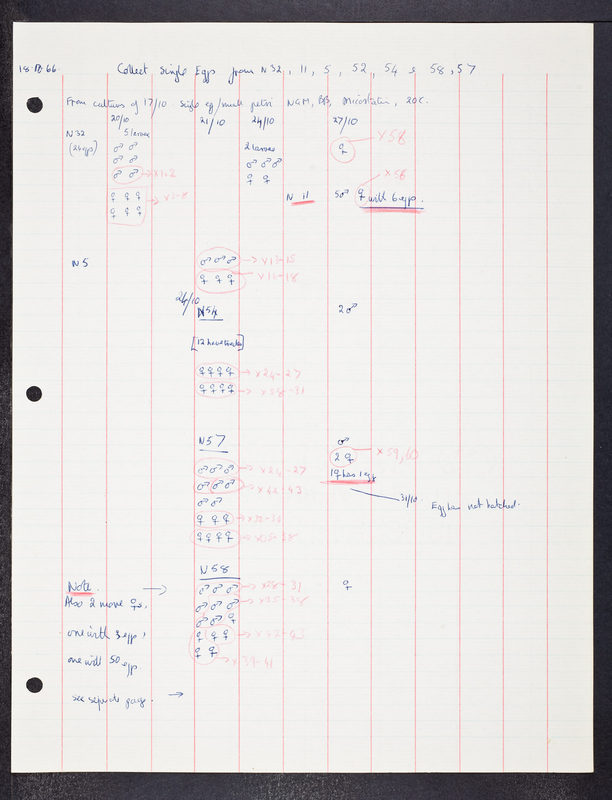 18.10.66. Collect single Eggs from N32, 11, 5, 52, 54 & 58, 57
From cultures of 17/10. single egg/small petri NGM, BB, 20C.
20/10 21/10 24/10 27/10
N32 5 larvae 2 larvae
♂ ♂ ♀ → x58
♂ ♂ ♂ ♂ ♂
♂ ♂ → x1-2 ♀ ♀
♀ ♀ ♀ → x3-8 N 11 5♂ ♀ with 6 eggs. x56
♀ ♀ ♀
N5 ♂ ♂ ♂ → x13-15
♀ ♀ ♀ → x16-18
24/10
N54 2♂
♀ ♀ ♀ ♀ → x24-27
♀ ♀ ♀ ♀ → x28-31
N57 ♂
2 ♀ x59,60
♂ ♂ ♂ → x24-27 1♀ has 1 egg
♂ ♂ ♂ → 31/10. Egg has not hatched.
♂ ♂
♀ ♀ ♀
♀ ♀ ♀ ♀
N58
Note → ♂ ♂ ♂ ♀
Also 2 more ♀s, ♂ ♂ ♂
♂ ♂ ♀
one with 3 eggs, ♀ ♀ ♀
one with 50 eggs. ♀ ♀ → x39-41
see separate page. →